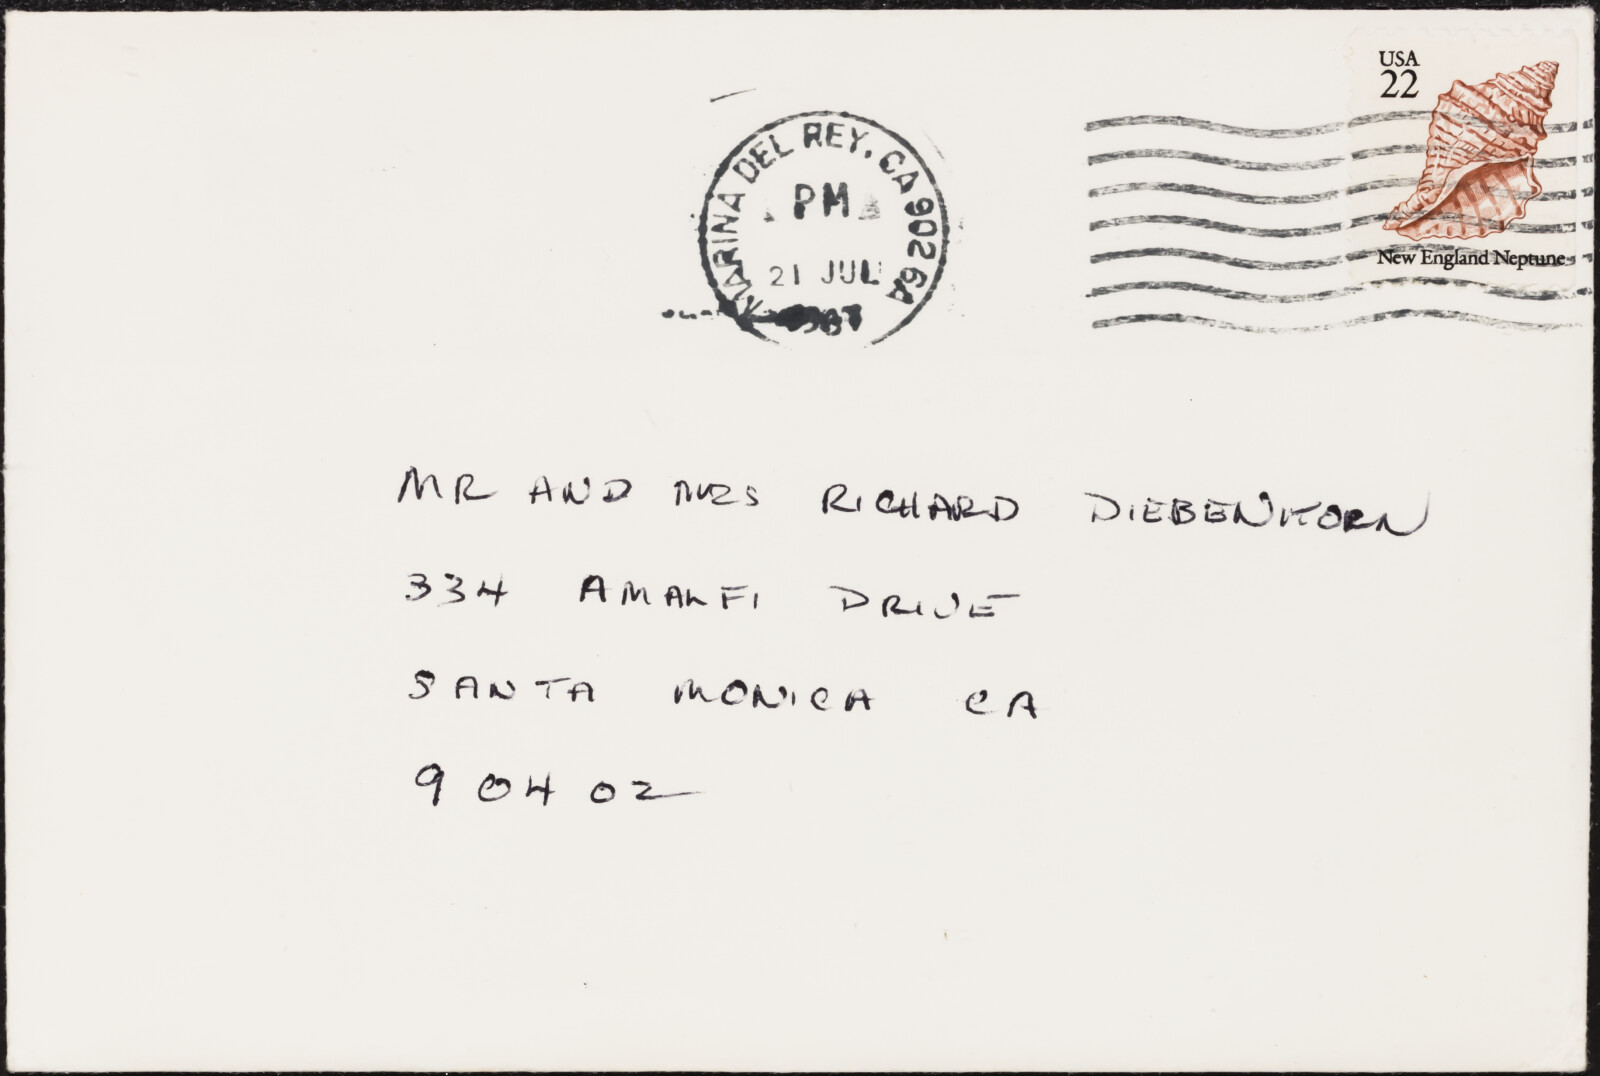 USA
22
New England Neptune
MARINA DEL REY, CA 90269A
PM
21 JUL
1987
MR AND MRS RICHARD DIEBENKORN
334 AMALFI DRIVE
SANTA MONICA CA
90402